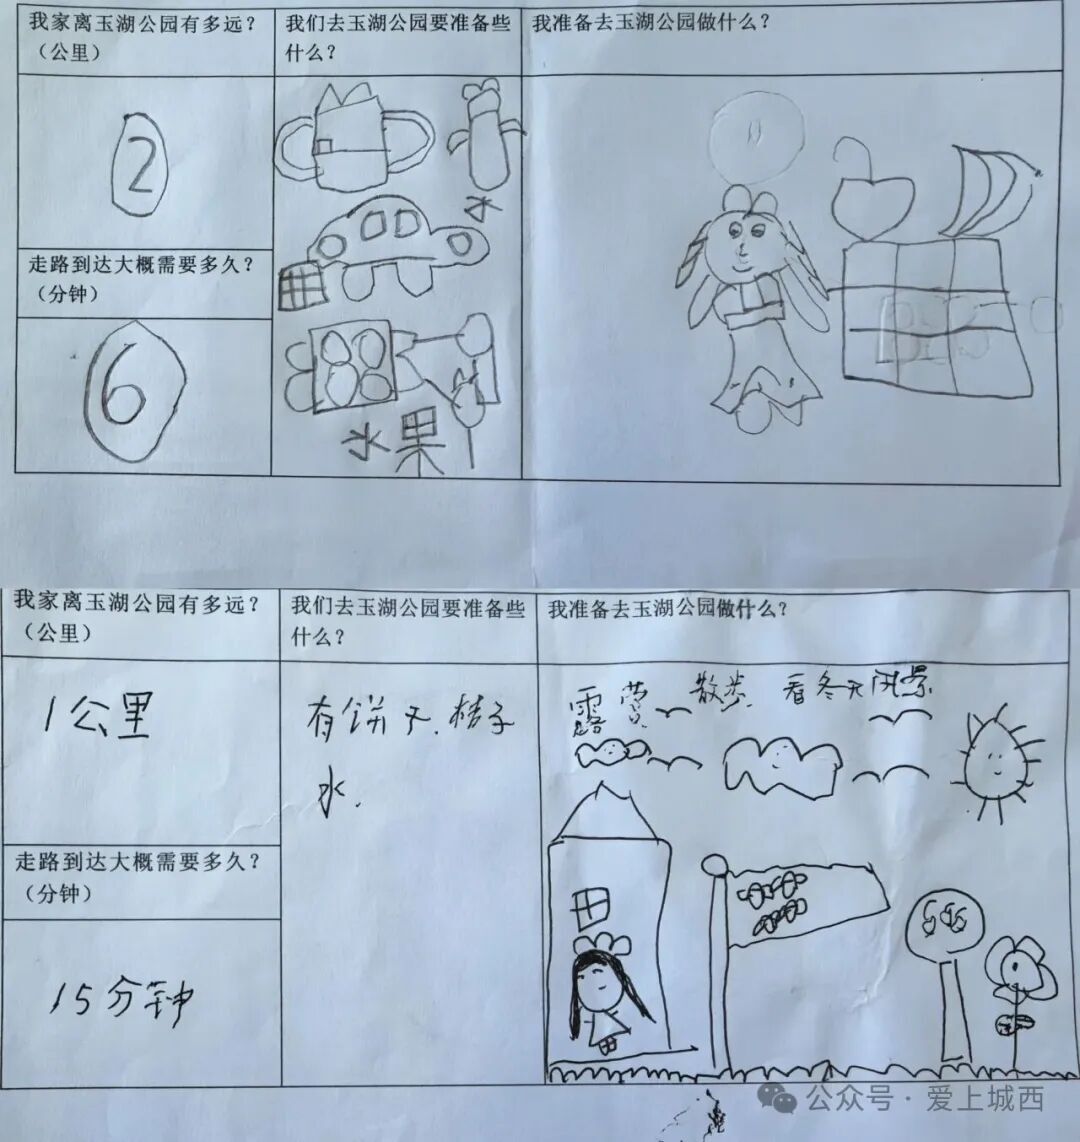 我家离玉湖公园有多远？
（公里）
我们去玉湖公园要准备些
什么？
我准备去玉湖公园做什么？
2
水
走路到达大概需要多久？
（分钟）
6
水果
我家离玉湖公园有多远？
（公里）
我们去玉湖公园要准备些
什么？
我准备去玉湖公园做什么？
1公里
有饼干、桔子
水.
露营 散步 看冬天风景
走路到达大概需要多久？
（分钟）
15分钟
公众号·爱上城西